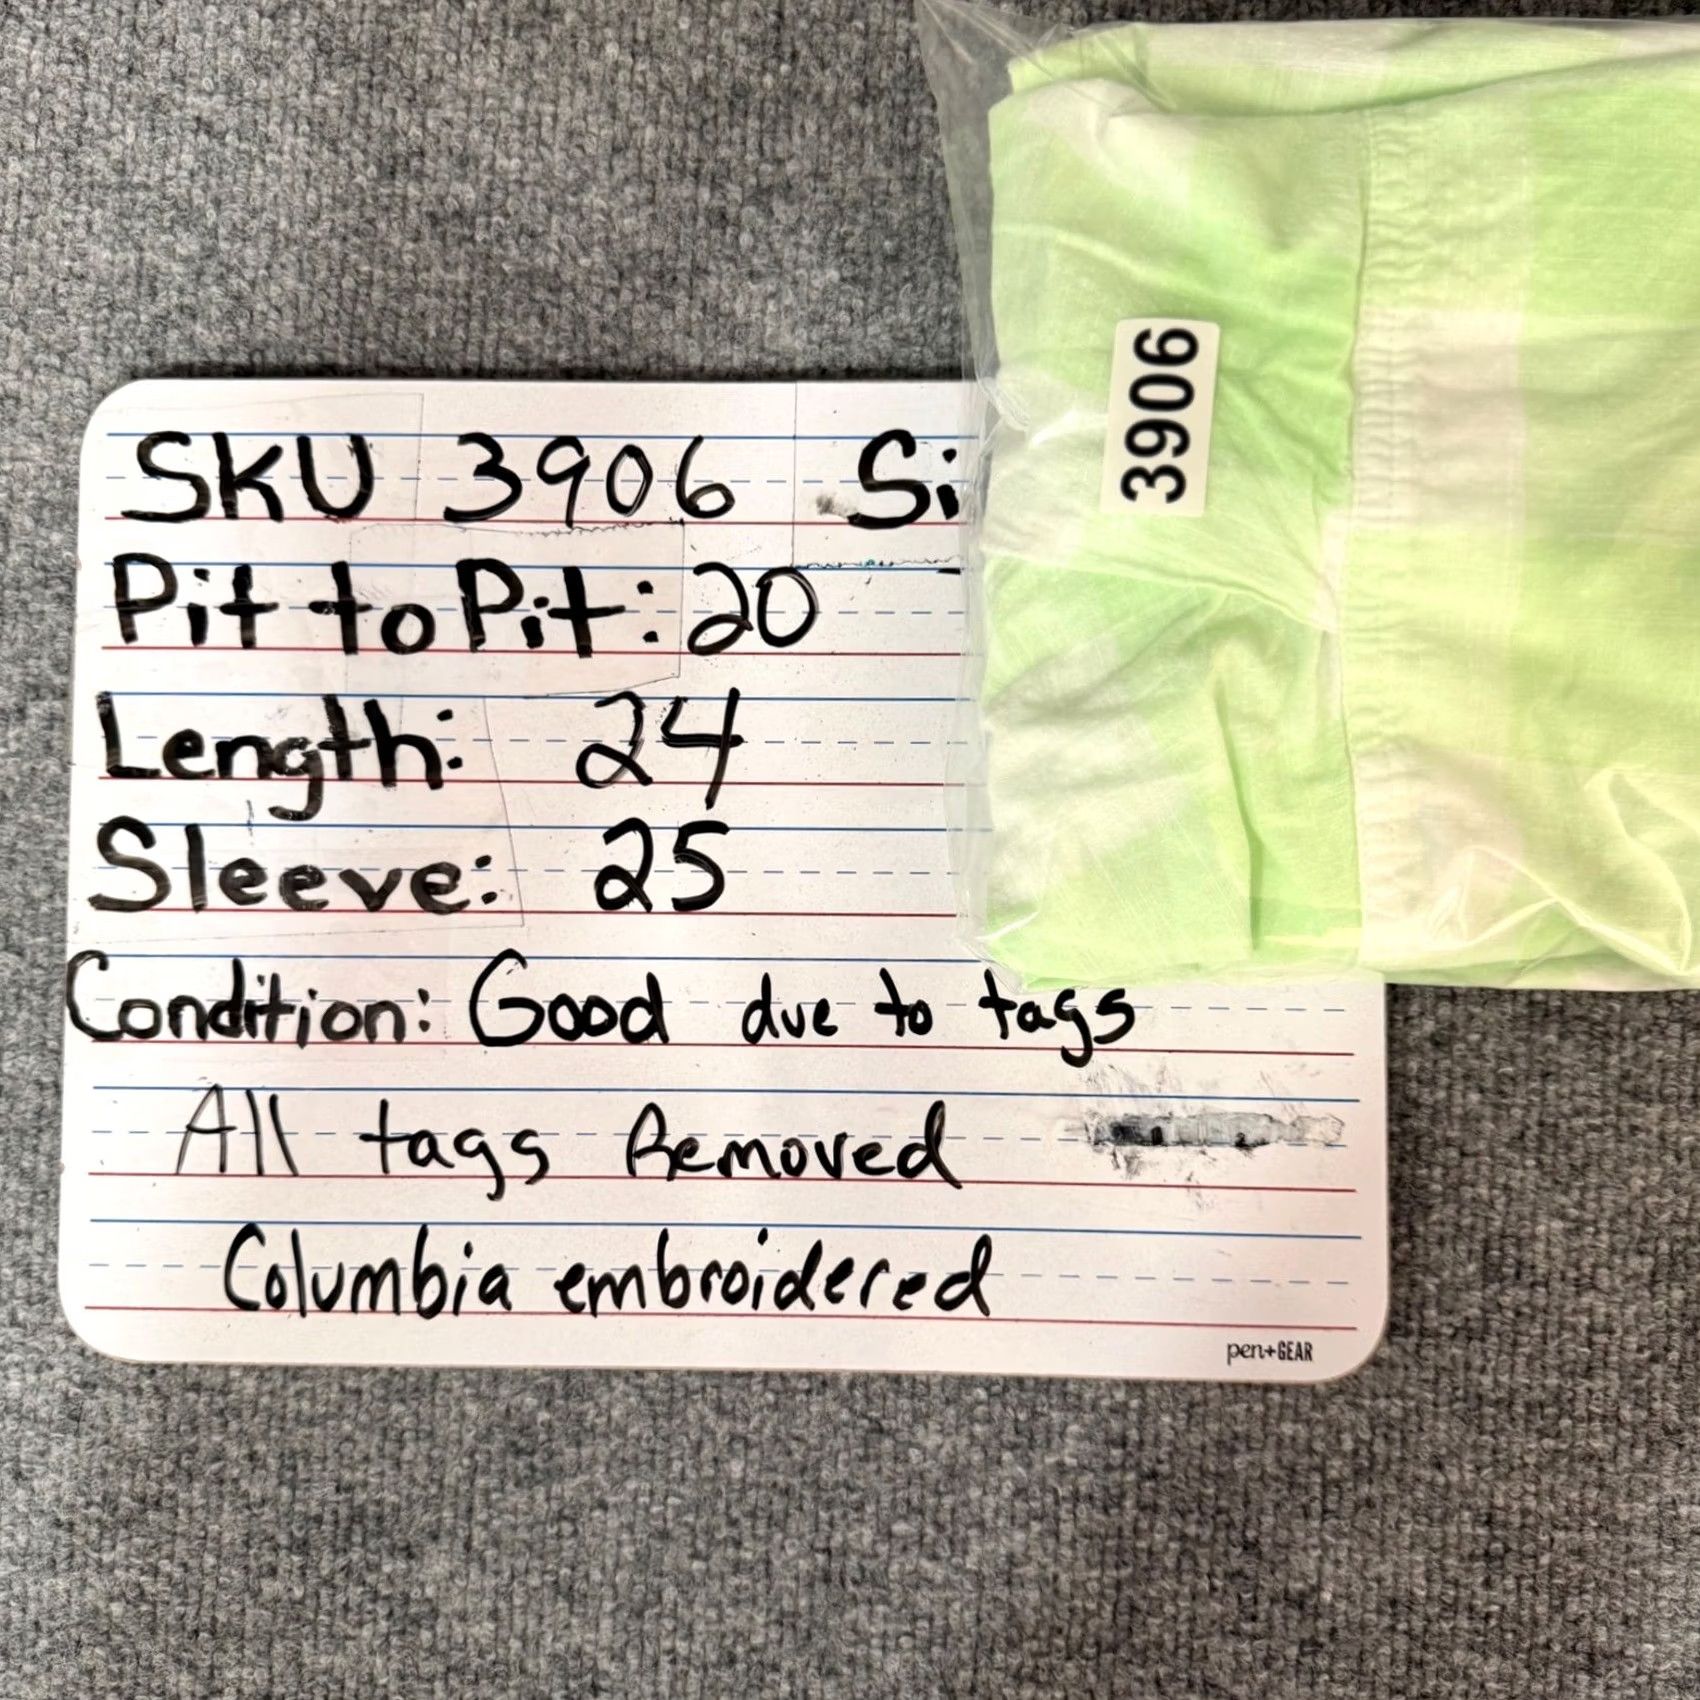 SKU 3906 Si
Pit to Pit: 20
Length: 24
Sleeve: 25
Condition: Good due to tags
All tags Removed
Columbia embroidered
pen+GEAR
3906